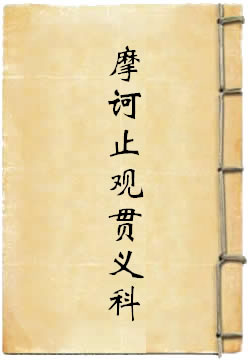 摩诃止观贯义科